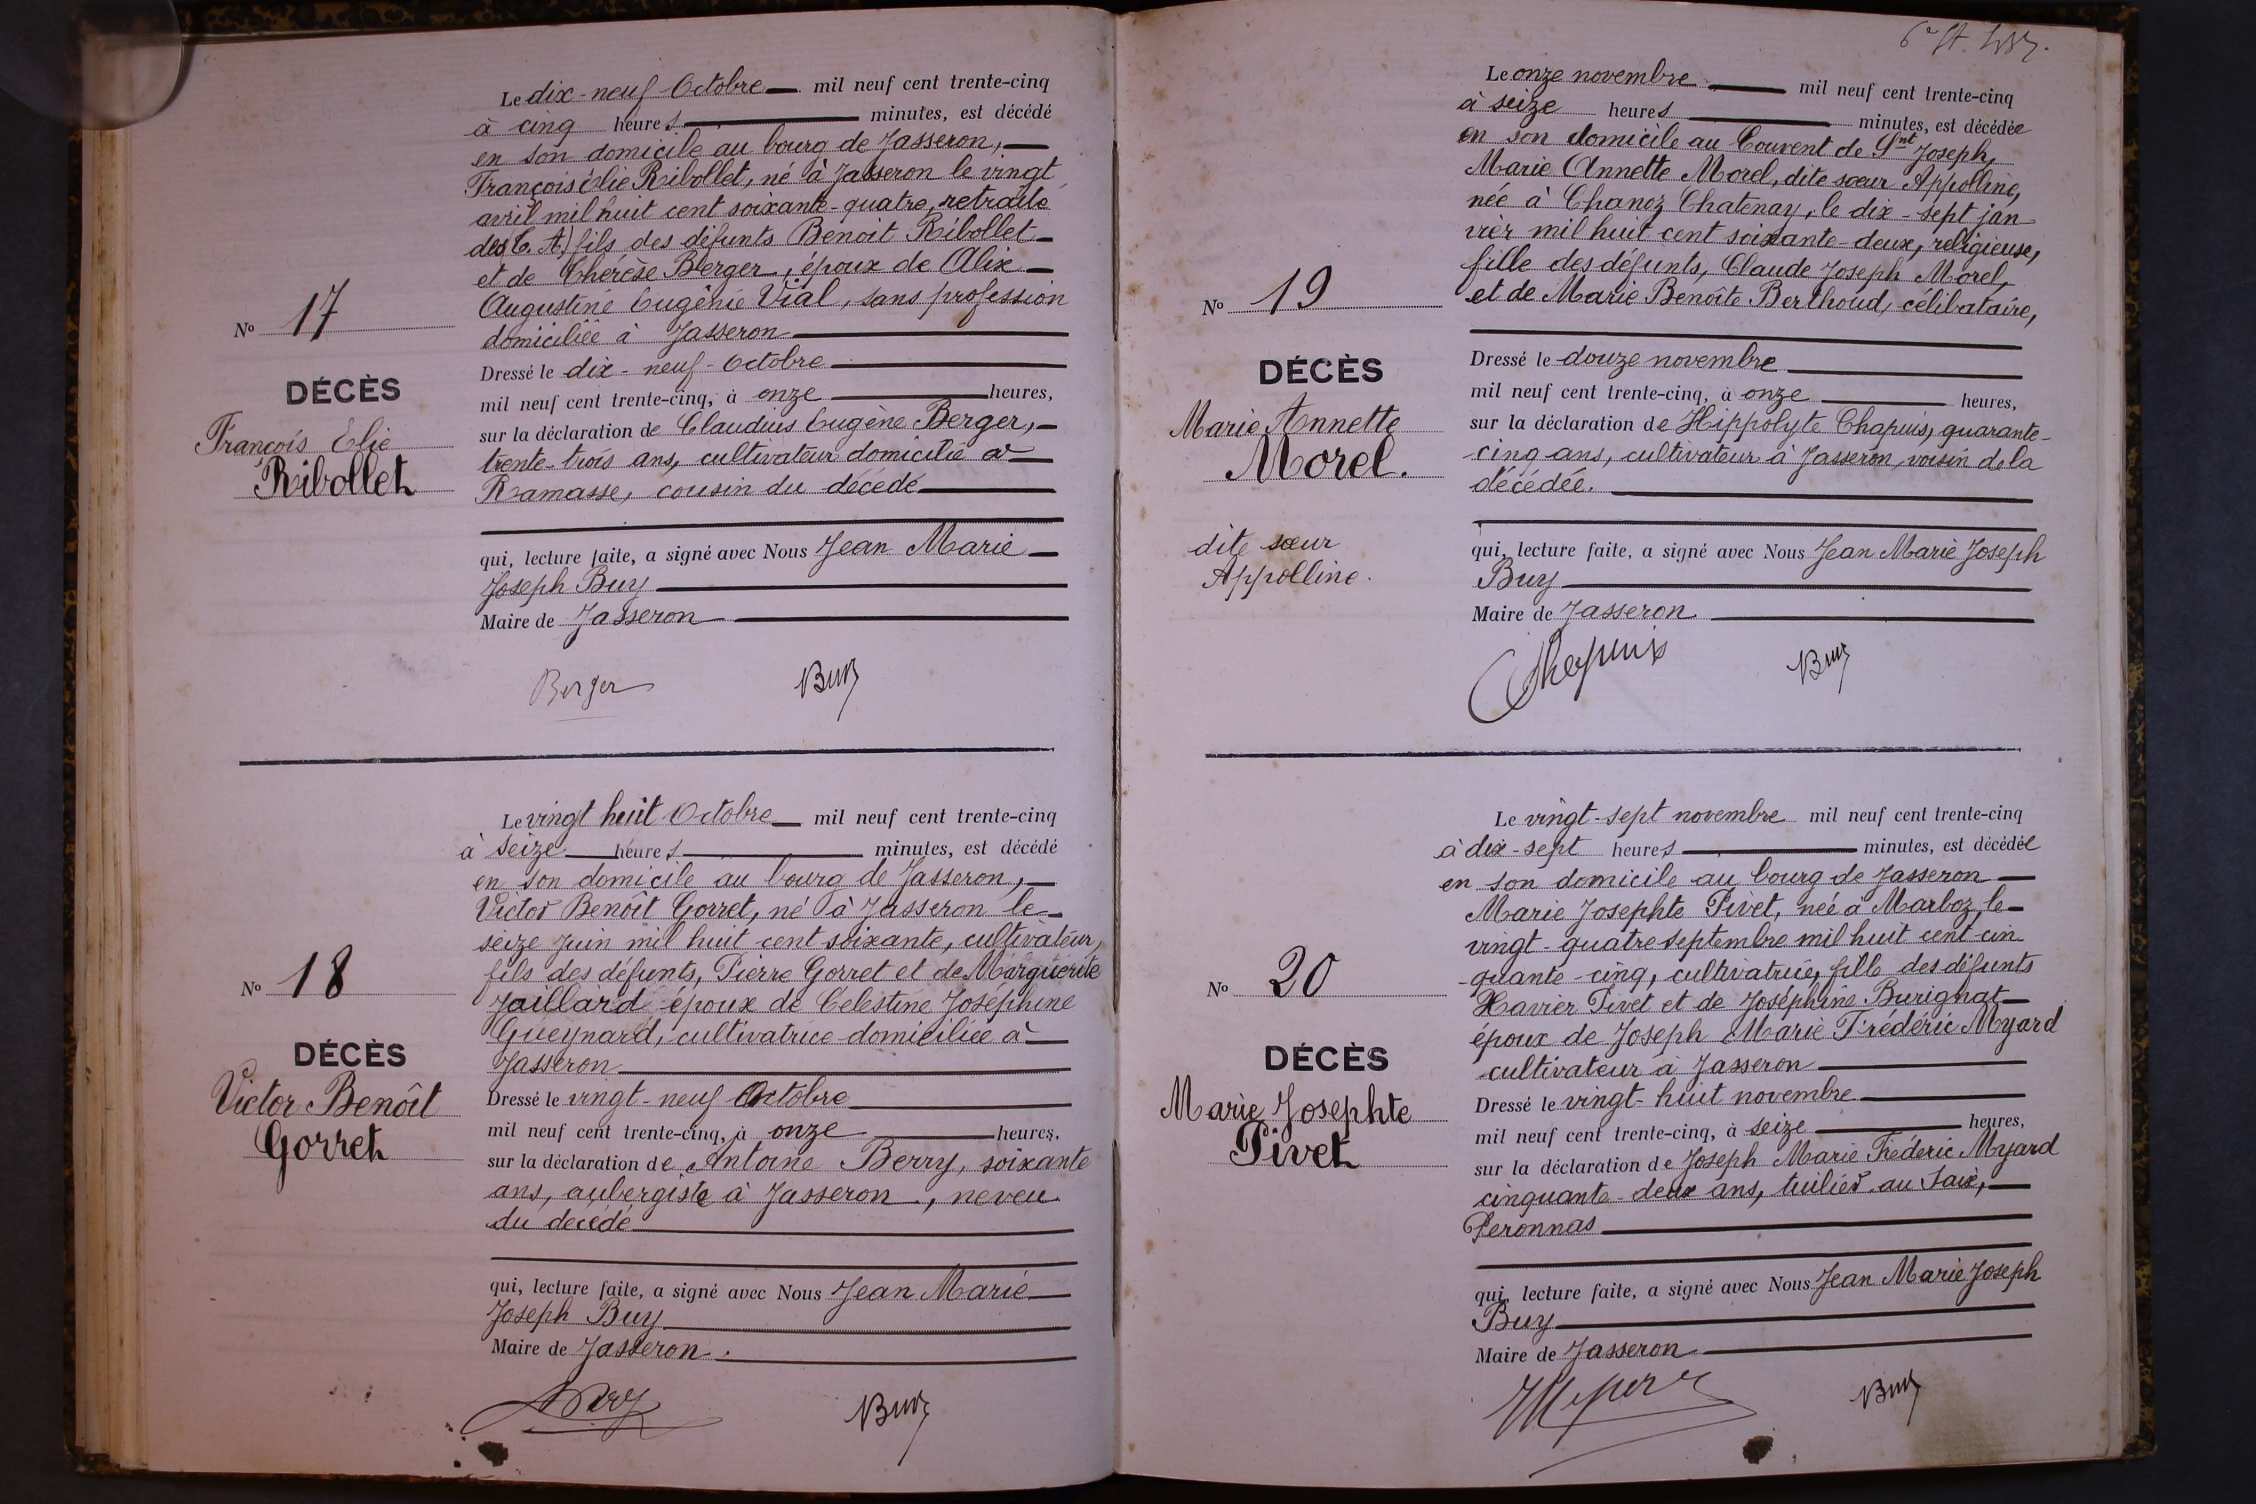 Le dix-neuf Octobre — mil neuf cent trente-cinq
à cinq heures — minutes, est décédé
en son domicile au bourg de Jasseron, —
François Élie Ribollet, né à Jasseron le vingt
avril mil huit cent soixante-quatre, retraité
des C. A) fils des défunts Benoit Ribollet —
et de Thérèse Berger, époux de Alix —
Augustine Eugénie Vial, sans profession
domiciliée à Jasseron —
Dressé le dix-neuf-Octobre —
mil neuf cent trente-cinq, à onze — heures,
sur la déclaration de Claudius Eugène Berger, —
trente-trois ans, cultivateur domicilié à —
Ramasse, cousin du décédé —
qui, lecture faite, a signé avec Nous Jean Marie —
Joseph Buy —
Maire de Jasseron —
Berger Buy
No 17
DÉCÈS
François Elie
Ribollet
Le vingt huit Octobre — mil neuf cent trente-cinq
à seize — heures — minutes, est décédé
en son domicile au bourg de Jasseron, —
Victor Benoît Gorret, né à Jasseron le —
seize Juin mil huit cent soixante, cultivateur,
fils des défunts, Pierre Gorret et de Marguerite
Jaillard époux de Celestine Joséphine
Gueynard, cultivatrice domiciliée à —
Jasseron —
Dressé le vingt-neuf Octobre —
mil neuf cent trente-cinq, à onze — heures.
sur la déclaration de Antoine Berry, soixante
ans, aubergiste à Jasseron, neveu
du décédé —
qui, lecture faite, a signé avec Nous Jean Marie —
Joseph Buy —
Maire de Jasseron. —
Buy
No 18
DÉCÈS
Victor Benoît
Gorret
Le onze novembre — mil neuf cent trente-cinq
à seize heures — minutes, est décédée
en son domicile au Couvent de Snt Joseph,
Marie Annette Morel, dite sœur Appolline,
née à Chanoz Chatenay, le dix-sept jan
vier mil huit cent soixante-deux, religieuse,
fille des défunts, Claude Joseph Morel,
et de Marie Benoîte Berthoud, célibataire,
Dressé le douze novembre —
mil neuf cent trente-cinq, à onze — heures,
sur la déclaration de Hippolyte Chapuis, quarante-
cinq ans, cultivateur à Jasseron, voisin de la
décédée. —
qui, lecture faite, a signé avec Nous Jean Marie Joseph
Buy —
Maire de Jasseron —
Chapuis Buy
No 19
DÉCÈS
Marie Annette
Morel.
dite sœur
Appolline.
Le vingt-sept novembre mil neuf cent trente-cinq
à dix-sept heures — minutes, est décédée
en son domicile au bourg de Jasseron —
Marie Josephte Pivet, née à Marboz, le —
vingt-quatre septembre mil huit cent cin
quante-cinq, cultivatrice, fille des défunts
Xavier Pivet et de Joséphine Burignat —
époux de Joseph Marie Frédéric Myard
cultivateur à Jasseron —
Dressé le vingt-huit novembre —
mil neuf cent trente-cinq, à seize — heures,
sur la déclaration de Joseph Marie Frédéric Myard
cinquante-deux ans, tuilier au Saix, —
Peronnas —
qui, lecture faite, a signé avec Nous Jean Marie Joseph
Buy —
Maire de Jasseron —
Buy
No 20
DÉCÈS
Marie Josephte
Pivet